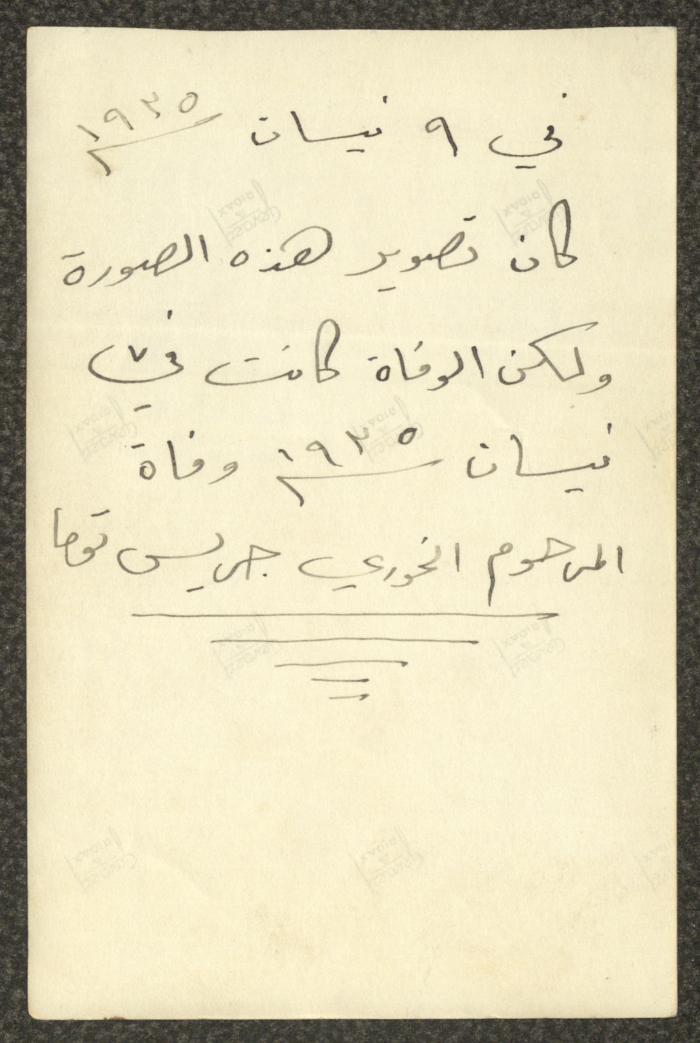 في ٩ نيسان ١٩٣٥
كان تصوير هذه الصورة
ولكن الوفاة كانت في ٧
نيسان ١٩٣٥ وفاة
المرحوم الخوري جريس توما